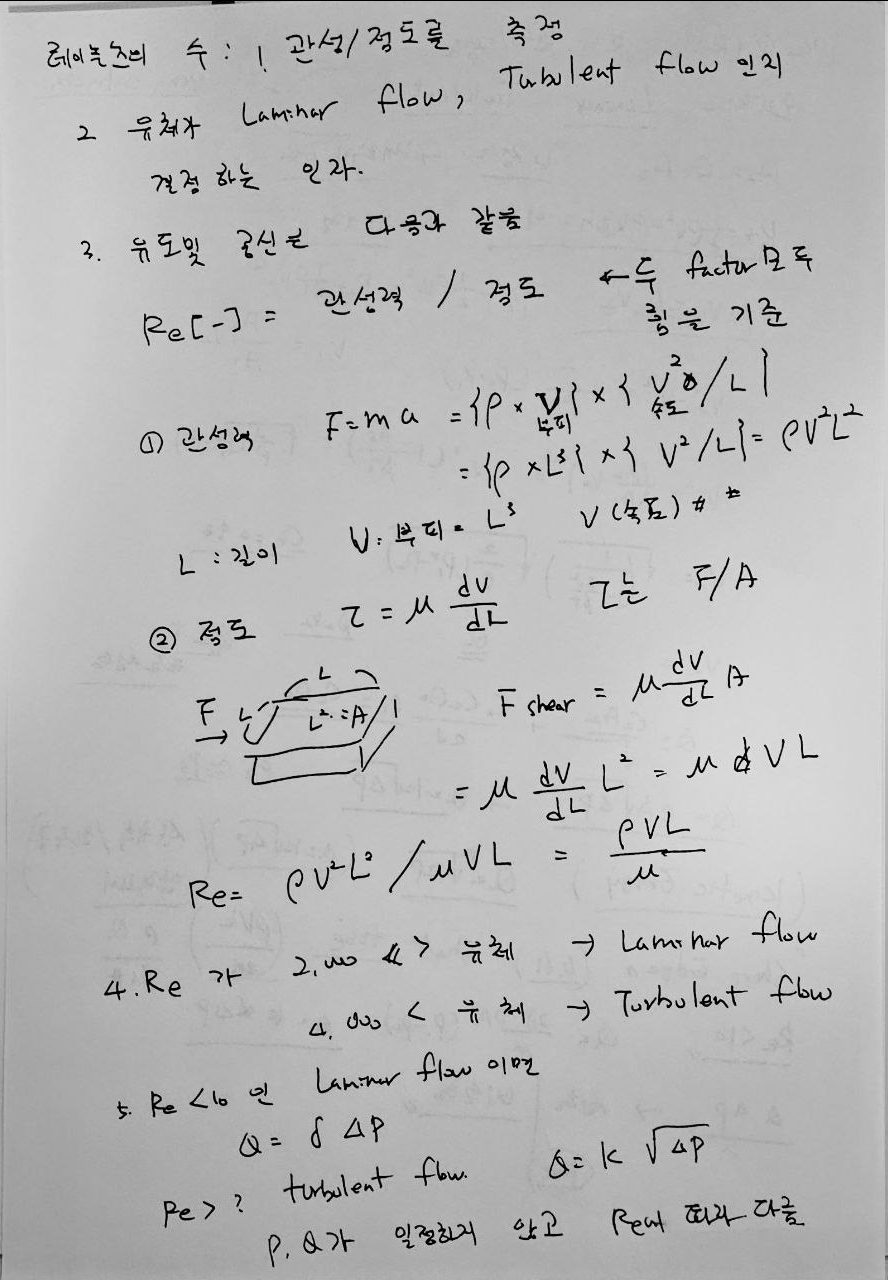 레이놀즈의 수 : 1 관성/점도를 측정
2 유체가 Laminar flow, Turbulent flow 인지
결정하는 인자.
3. 유도및 공식은 다음과 같음
Re[-] = 관성력 / 점도 ← 두 factor 모두
힘을 기준
① 관성력 F=ma = {ρ × V} × { V² / L }
부피 속도
= {ρ × L³} × { V² / L } = ρV²L²
L : 길이 V: 부피 = L³ V (속도)
② 점도 τ = μ dV/dL τ는 F/A
F → L L L² = A F shear = μ dV/dL A
= μ dV/dL L² = μ V L
Re = ρV²L² / μVL = ρVL/μ
4. Re 가 2,000 > 유체 → Laminar flow
4,000 < 유체 → Turbulent flow
5. Re <10 인 Laminar flow 이면
Q = δ ΔP
Re > ? turbulent flow. Q = K √ΔP
P, Q가 일정하지 않고 Re에 따라 다름